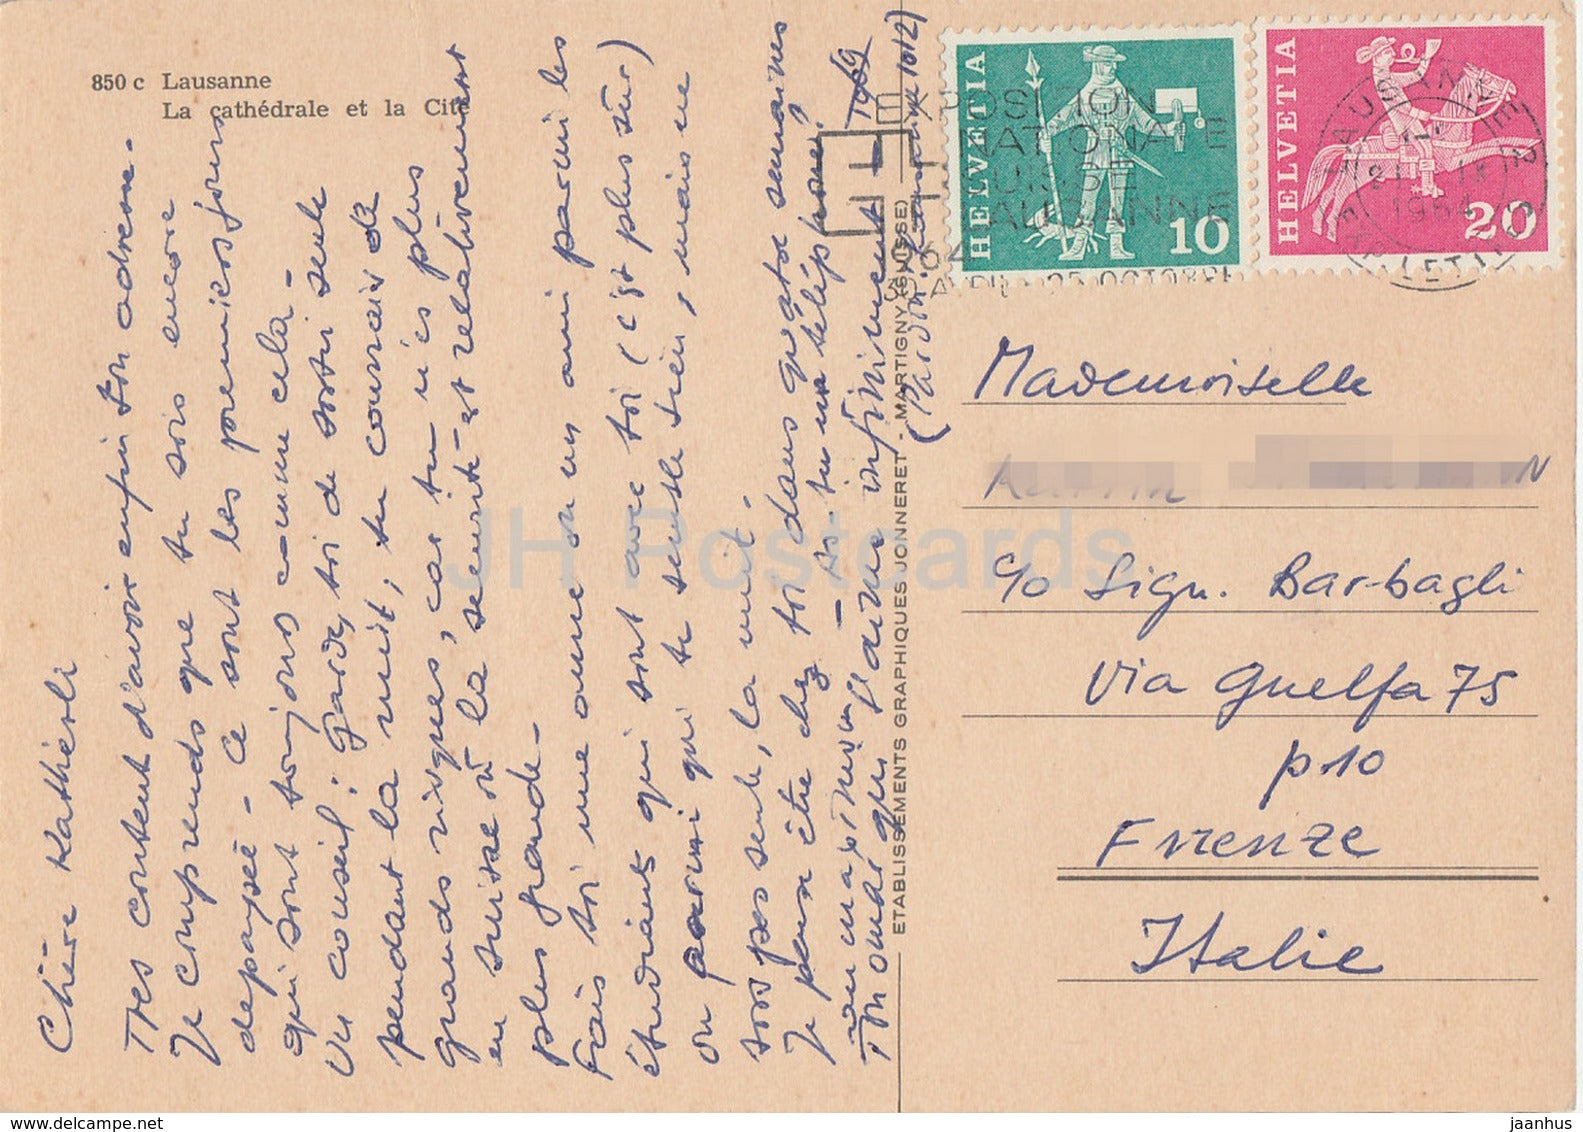 850 c Lausanne
La cathédrale et la Cité
Chère Kathérli
Très content d'avoir enfin ton adresse -
Je comprends que tu sois encore
depaysée - Ce sont les premiers jours
qui sont toujours comme cela -
Un conseil : gardes toi de sortir seule
pendant la nuit, tu courrais de
grands risques, car tu n'es plus
en suisse où la sécurité est relativement
plus grande -
Fais toi une amie ou un ami parmi les
étudiants qui sont avec toi (c'est plus sûr)
ou parmi qui te semble bien, mais ne
sors pas seule, la nuit -
Je pense être chez toi dans quatre semaines
- as-tu un téléphone?
Thomas qui t'aime infiniment -
(Pardon
HELVETIA
10
HELVETIA
20
EXPOSITION
NATIONALE
SUISSE
LAUSANNE
1964
30 AVRIL 25 OCTOBRE
LAUSANNE
1964
EXP. LETTRES
ETABLISSEMENTS GRAPHIQUES JONNERET - MARTIGNY (SUISSE)
Mademoiselle
c/o Sign. Barbagli
Via Guelfa 75
p. 10
Firenze
Italie
JH Postcards
www.jhpostcards.com
jaanhus